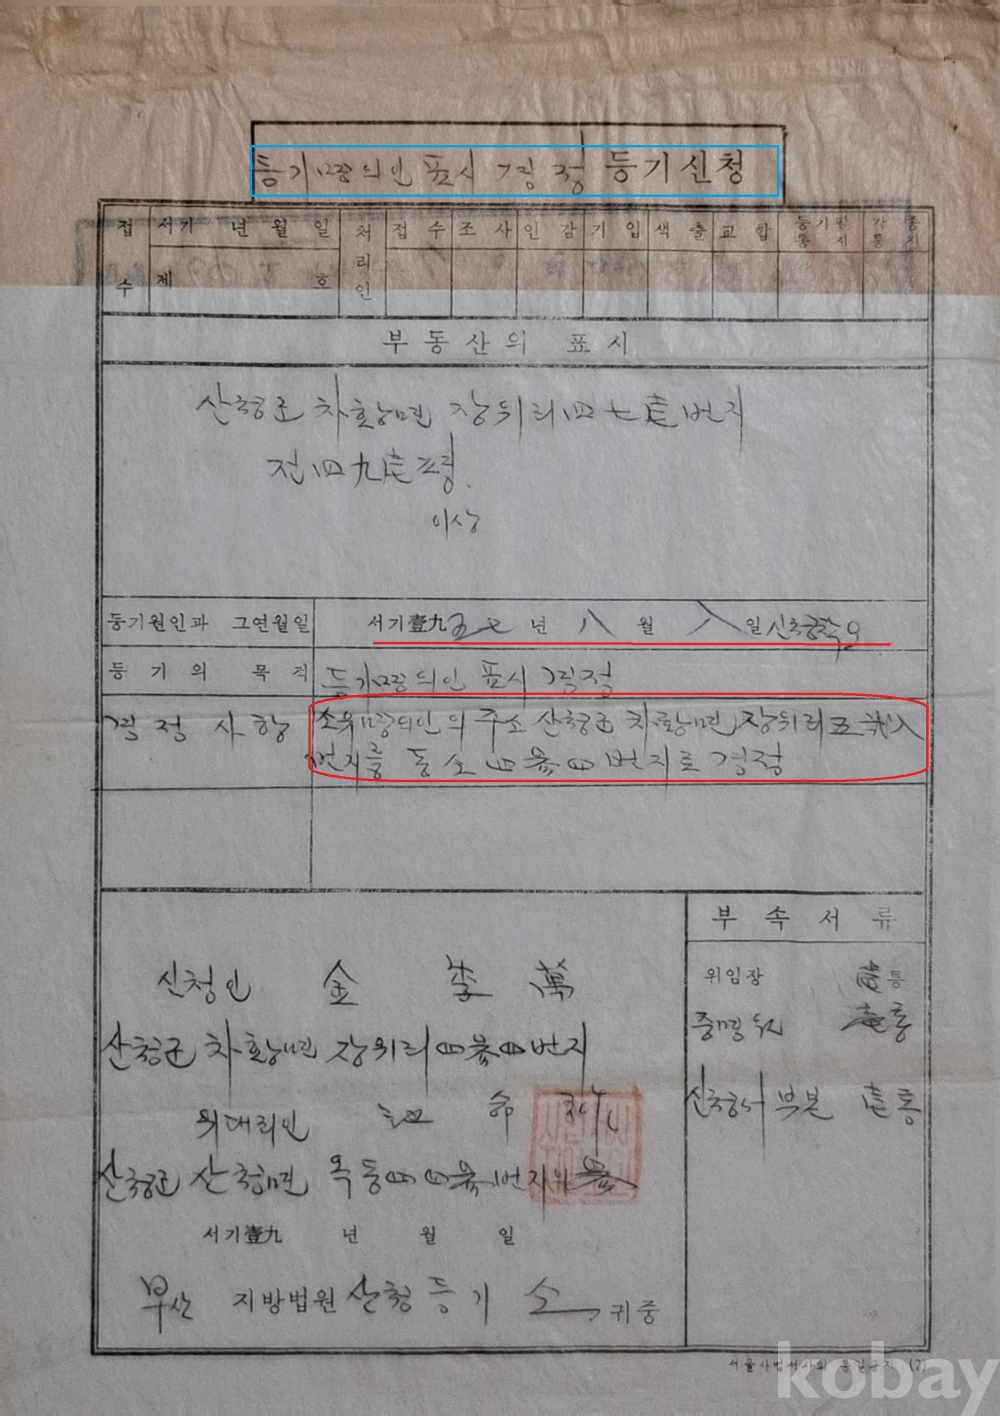 등기명의인 표시 경정 등기신청
접수 서기 년 월 일 처리인 접수 조사 인감 기입 색출 교합 등기필통지 각종통지
제 호
부동산의 표시
산청군 차황면 장위리 四七壱번지
전 四九壱평.
이상
등기원인과 그연월일 서기壹九五七년 八월 八일 신청착오
등기의 목적 등기명의인 표시 경정
경정사항 소유명의인의 주소 산청군 차황면 장위리 五弐八
번지를 동소 四参四번지로 경정
부속서류
신청인 金 李 萬
위임장 壱통
산청군 차황면 장위리 四参四번지
증명원 壱통
위대리인
신청서 부본 壱통
산청군 산청면 옥동 四四参번지의 参
서기壹九 년 월 일
부산 지방법원 산청등기소 귀중
서울사법서사회 통일용지 (7)
kobay